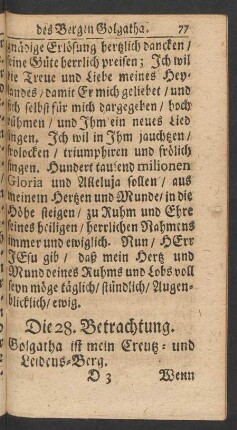 des Bergen Golgatha. 77
gnädige Erlösung hertzlich dancken /
seine Güte herrlich preisen; Ich wil
die Treue und Liebe meines Hey-
landes / damit Er mich geliebet / und
sich selbst für mich dargegeben / hoch
rühmen / und Ihm ein neues Lied
singen. Ich wil in Ihm jauchtzen /
frolocken / triumphiren und frölich
singen. Hundert tausend milionen
Gloria und Alleluja sollen / aus
meinem Hertzen und Munde / in die
Höhe steigen / zu Ruhm und Ehre
seines heiligen / herrlichen Nahmens
immer und ewiglich. Nun / HErr
JEsu gib / daß mein Hertz und
Mund deines Ruhms und Lobs voll
seyn möge täglich / stündlich / Augen-
blicklich / ewig.
Die 28. Betrachtung.
Golgatha ist mein Creutz- und
Leidens-Berg.
D 3 Wenn